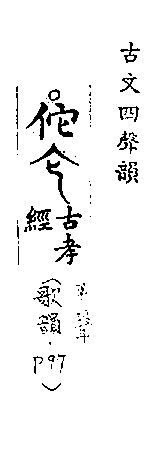 古文四聲韻
佗
古孝
經
(歌韻.
P97)